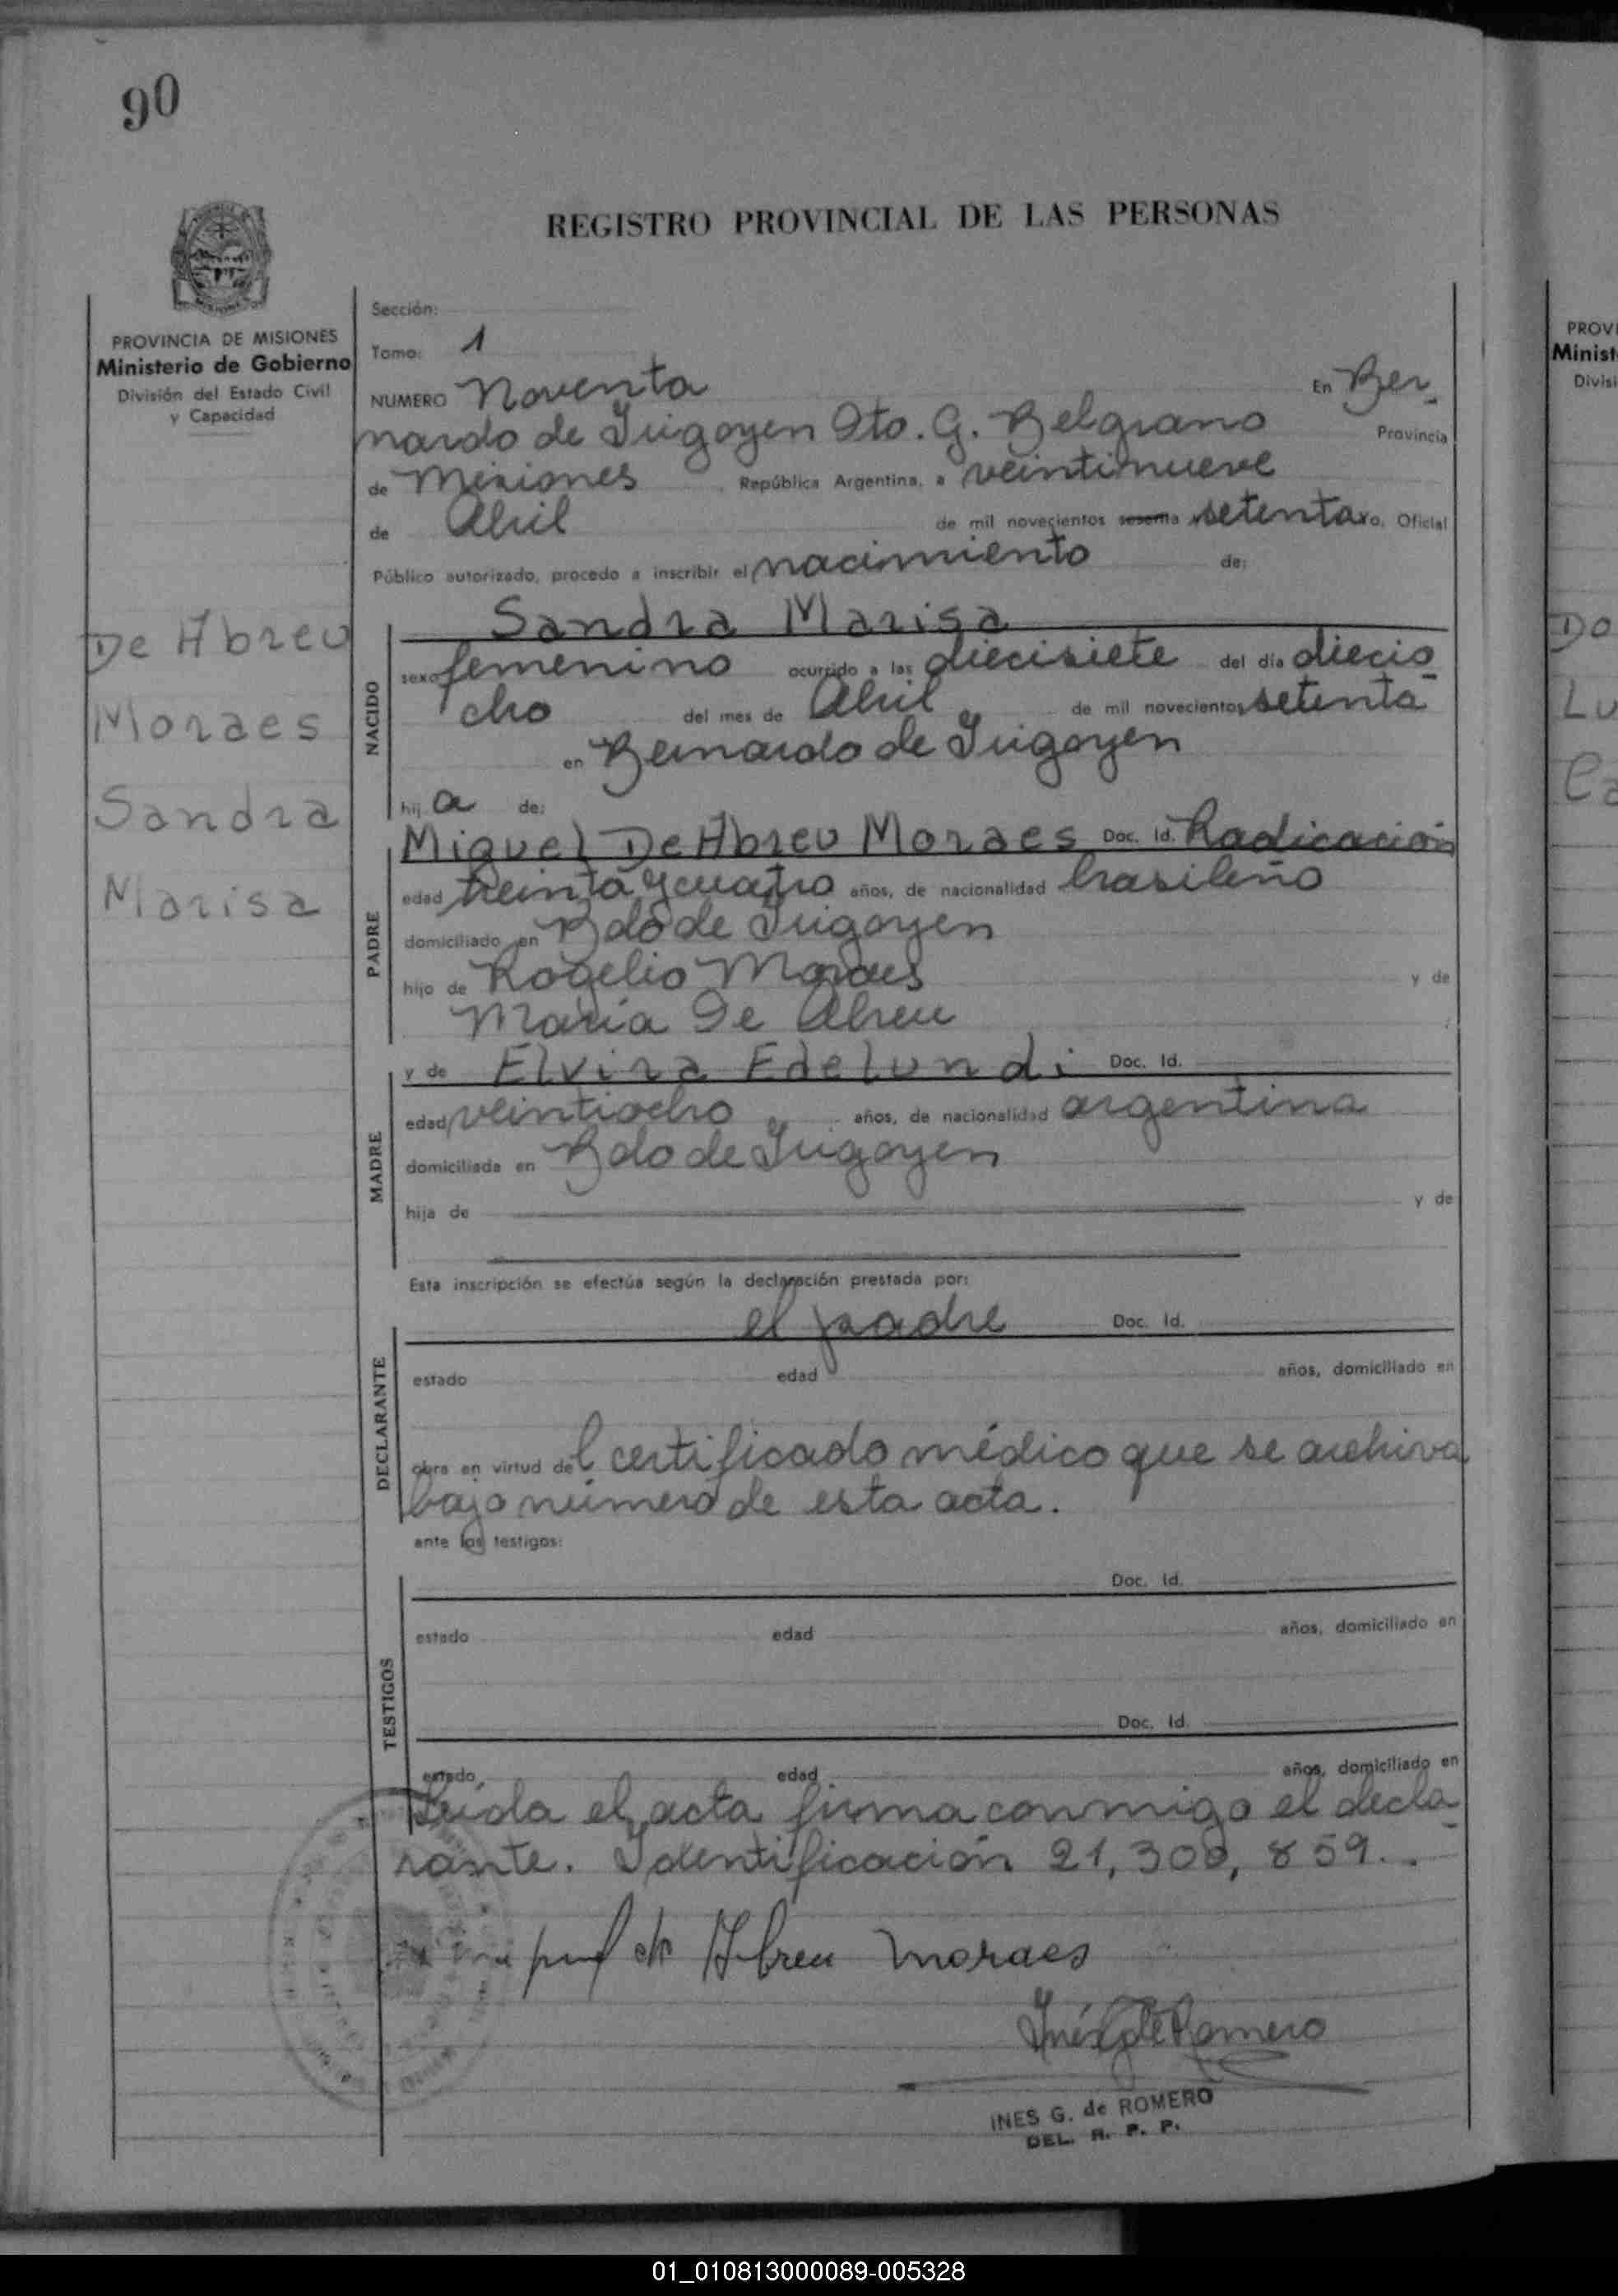 90
REGISTRO PROVINCIAL DE LAS PERSONAS
PROVINCIA DE MISIONES
Ministerio de Gobierno
División del Estado Civil
y Capacidad
De Abreu
Moraes
Sandra
Marisa
Sección:
Tomo: 1
NUMERO Noventa En Ber-
nardo de Irigoyen Dto. G. Belgrano Provincia
de Misiones República Argentina, a veintinueve
de Abril de mil novecientos sesenta setenta yo, Oficial
Público autorizado, procedo a inscribir el nacimiento de:
NACIDO
Sandra Marisa
sexo femenino ocurrido a las diecisiete del día diecio-
cho del mes de Abril de mil novecientos setenta
en Bernardo de Irigoyen
hij a de:
PADRE
Miguel De Abreu Moraes Doc. Id. Radicación
edad treinta y cuatro años, de nacionalidad brasileño
domiciliado en Bdo de Irigoyen
hijo de Rogelio Moraes y de
María De Abreu
MADRE
y de Elvira Edelundi Doc. Id.
edad veintiocho años, de nacionalidad argentina
domiciliada en Bdo de Irigoyen
hija de y de
Esta inscripción se efectúa según la declaración prestada por:
DECLARANTE
el padre Doc. Id.
estado edad años, domiciliado en
obra en virtud del certificado médico que se archiva
bajo número de esta acta.
ante los testigos:
TESTIGOS
Doc. Id.
estado edad años, domiciliado en
Doc. Id.
estado edad años, domiciliado en
Leída el acta firma conmigo el decla-
rante. Identificación 21,300,859..
de Abreu moraes
Inés G de Romero
INES G. de ROMERO
DEL. R. P. P.
PROVI
Minist
Divisi
Do
Lu
Ca
01_010813000089-005328